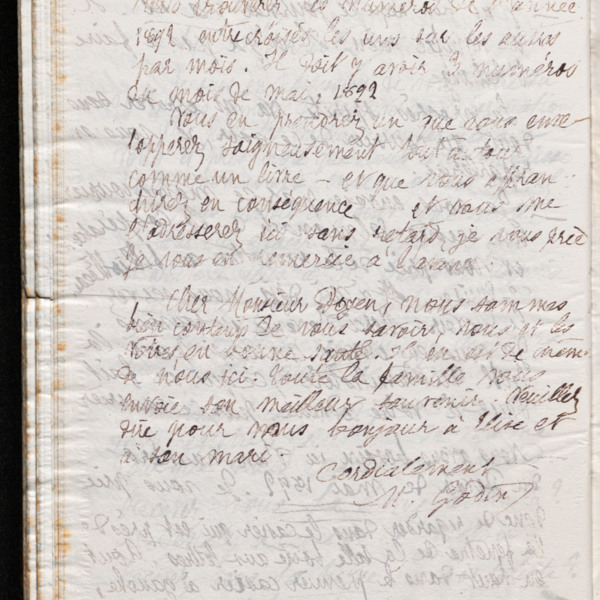 vous trouverez les numéros de l'année
1892 entrecroisés les uns sur les autres
par mois. Il doit y avoir 3 numéros
du mois de mai, 1892
Vous en prendrez un que vous enve-
lopperez soigneusement tout à fait
comme un livre – et que vous affran
chirez en conséquence et vous me
l'adresserez ici sans retard, je vous prie
Je vous en remercie à l'avance.
Cher Monsieur Doyen, nous sommes
bien contents de vous savoir, vous et les
vôtres en bonne santé. Il en est de même
de nous ici. Toute la famille vous
envoie son meilleur souvenir. Veuillez
dire pour nous bonjour à Elise et
à son mari.
Cordialement
M. Godin